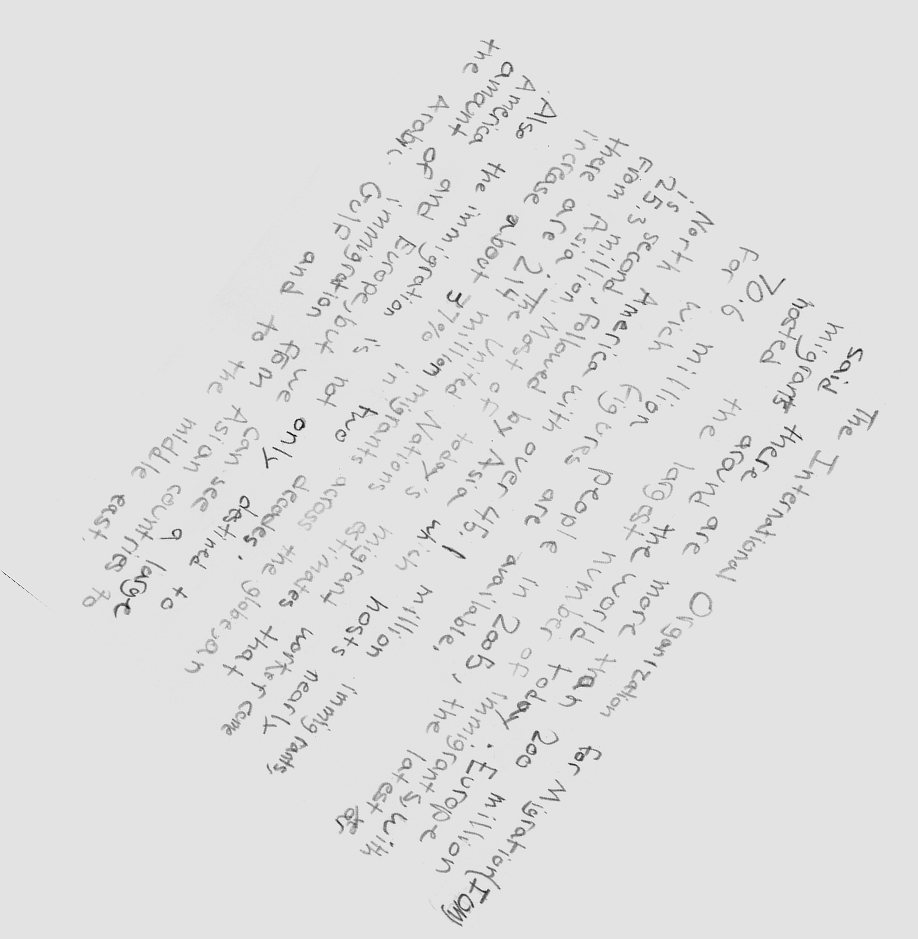 The International Organization for Migration (IOM)
said there are more than 200 million
migrants around the world today. Europe
hosted the largest number of immigrants, with
70.6 million people in 2005, the latest
for wich figures are available.
North America with over 45.1 million immigrants,
is second, followed by Asia which hosts nearly
25.3 million. Most of today's migrant worker come
From Asia. The United Nations estimates that
there are 214 million migrants across the globe, an
increase about 37% in two decades.
Also the immigration is not only destined to
America and Europe, but we can see a large
amount of immigration fom Asian countries to
the Arabic Gulf and to the middle east.